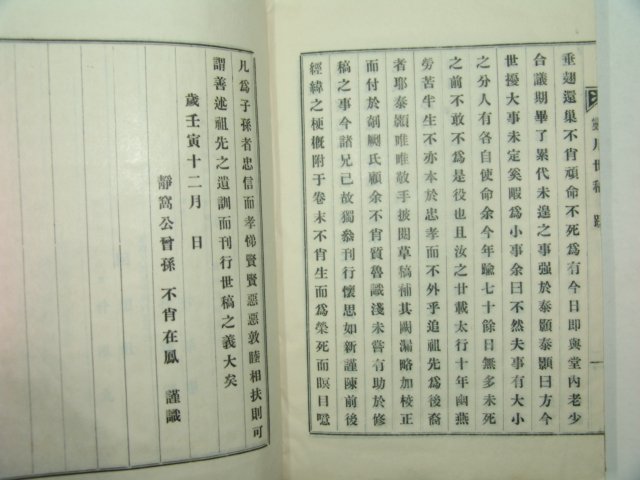 垂翅還巢不肖頑命不死爲有今日即與堂內老少
合議期畢了累代未遑之事强於泰顥泰顥曰方今
世擾大事未定奚暇爲小事余曰不然夫事有大小
之分人有各自使命余今年踰七十餘日無多未死
之前不敢不爲是役也且汝之廿載太行十年幽燕
勞苦半生不亦本於忠孝而不外乎追祖先爲後裔
者耶泰顥唯唯敢手披閱草稿補其闕漏略加校正
而付於剞劂氏顧余不肖質魯識淺未嘗有助於修
稿之事今諸兄已故獨叅刊行懷思如新謹陳前後
經緯之梗槪附于卷末不肖生而爲榮死而瞑目噫
凡爲子孫者忠信而孝悌賢賢惡惡敦睦相扶則可
謂善述祖先之遺訓而刊行世稿之義大矣
歲壬寅十二月 日
靜窩公曾孫 不肖在鳳 謹識
月世稿 跋
一